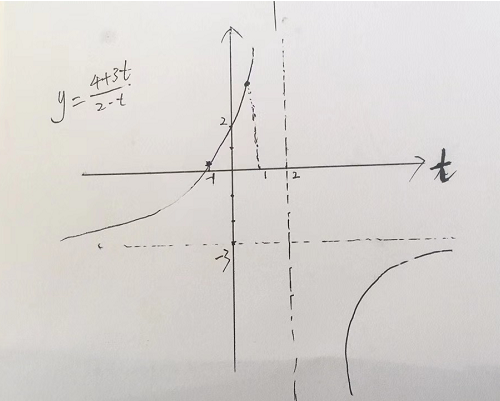 y = \frac{4+3t}{2-t}
2
-1
1
2
t
-3